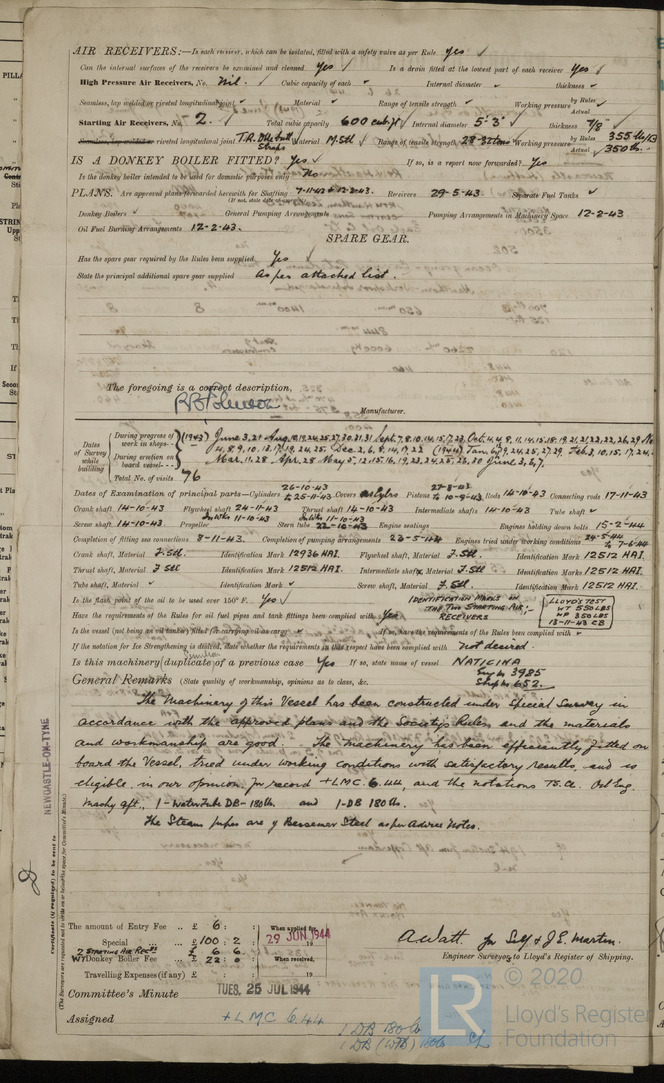 AIR RECEIVERS:—Is each receiver, which can be isolated, fitted with a safety valve as per Rule yes ✓
Can the internal surfaces of the receivers be examined and cleaned Yes ✓ Is a drain fitted at the lowest part of each receiver Yes ✓
High Pressure Air Receivers, No. Nil. Cubic capacity of each ✓ Internal diameter ✓ thickness ✓
Seamless, lap welded or riveted longitudinal joint ✓ Material ✓ Range of tensile strength ✓ Working pressure by Rules Actual ✓
Starting Air Receivers, No. 2. Total cubic capacity 600 cub.ft ✓ Internal diameter 5'-3" thickness 7/8 ✓
Seamless, lap welded or riveted longitudinal joint T.R. Dble butt Straps Material M.Stl Range of tensile strength 28-32 tons Working pressure by Rules 355 lbs Actual 350 lb.
IS A DONKEY BOILER FITTED? Yes ✓ If so, is a report now forwarded? Yes
Is the donkey boiler intended to be used for domestic purposes only No
PLANS. Are approved plans forwarded herewith for Shafting 7-11-42 & 12-2-43. Receivers 29-5-43. Separate Fuel Tanks ✓
(If not, state date of approval)
Donkey Boilers ✓ General Pumping Arrangements Pumping Arrangements in Machinery Space 12-2-43
Oil Fuel Burning Arrangements 12-2-43.
SPARE GEAR.
Has the spare gear required by the Rules been supplied Yes ✓
State the principal additional spare gear supplied As per attached list.
The foregoing is a correct description,
Manufacturer.
Dates of Survey while building
During progress of work in shops - - (1943) June 3, 21 Aug. 18, 19, 24, 25, 27, 30, 31, 31 Sept. 7, 8, 10, 14, 15, 17, 23 Oct. 4, 4, 8, 11, 14, 15, 18, 19, 21, 21, 22, 22, 26, 29 No
4, 8, 9, 10, 12, 17, 19, 24, 25. Dec. 2, 6, 8, 14, 17, 22 (1944) Jan.
During erection on board vessel - - - Mar. 11. 28 Apr. 28 May 5, 12, 15, 16, 19, 23, 24, 25, 26, 30 June 3, 6, 7.
Total No. of visits 76
Dates of Examination of principal parts—Cylinders 26-10-43 to 25-11-43 Covers as Cylrs Pistons 27-8-43 to 10-9-43 Rods 14-10-43 Connecting rods 17-11-43
Crank shaft 14-10-43 Flywheel shaft 24-11-43 Thrust shaft 14-10-43 Intermediate shafts 14-10-43 Tube shaft ✓
Screw shaft 14-10-43. Propeller In Wks 11-10-43 Stern tube In Wks 11-10-43 22-10-43 Engine seatings Engines holding down bolts 15-2-44
Completion of fitting sea connections 8-11-43. Completion of pumping arrangements 23-5-44 Engines tried under working conditions 24-5-44 to 7-6-44
Crank shaft, Material F.Stl. Identification Mark 12936 HAI. Flywheel shaft, Material F.Stl. Identification Mark 12512 HAI.
Thrust shaft, Material F Stl Identification Mark 12512 HAI. Intermediate shafts, Material F.Stl Identification Marks 12512 HAI.
Tube shaft, Material ✓ Identification Mark ✓ Screw shaft, Material F.Stl. Identification Mark 12512 HAI
Is the flash point of the oil to be used over 150° F. Yes ✓
IDENTIFICATION MARKS ON THE TWO STARTING AIR RECEIVERS
LLOYD'S TEST
WT 550 LBS
WP 350 LBS
13-11-43 CB
Have the requirements of the Rules for oil fuel pipes and tank fittings been complied with Yes
Is the vessel (not being an oil tanker) fitted for carrying oil as cargo ✓ If so, have the requirements of the Rules been complied with ✓
If the notation for Ice Strengthening is desired, state whether the requirements in this respect have been complied with Not desired.
Is this machinery duplicate of a previous case Yes If so, state name of vessel NATICINA
Eng No 3985
Ship No 652.
General Remarks (State quality of workmanship, opinions as to class, &c.
The Machinery of this Vessel has been constructed under Special Survey in
accordance with the approved plans and the Society's Rules and the materials
and workmanship are good. The machinery has been efficiently fitted on
board the Vessel, tried under working conditions with satisfactory results, and is
eligible, in our opinion, for record +LMC 6.44, and the notations TS. CL. Oil Eng.
Machy aft., 1-WaterTube DB-180lb. and 1-DB 180lb.
The Steam pipes are of Bessemer Steel as per Advice Notes.
NEWCASTLE-ON-TYNE
Certificate (if required) to be sent to
(The Surveyors are requested not to write on or below the space for Committee's Minute.)
The amount of Entry Fee .. £ 6 : :
Special ... £ 100 : 2 :
2 Starting Air Recrs £ 6 6
WT Donkey Boiler Fee ... £ 22 : 0 :
Travelling Expenses (if any) £ : :
When applied for
29 JUN 1944
When received,
19
A. Watt. for Self & J.E. Martin.
Engineer Surveyor to Lloyd's Register of Shipping.
Committee's Minute TUES. 25 JUL 1944
Assigned +LMC 6.44
1 DB 180 lb
1 DB (WTB) 180 lb
LR
© 2020
Lloyd's Register
Foundation